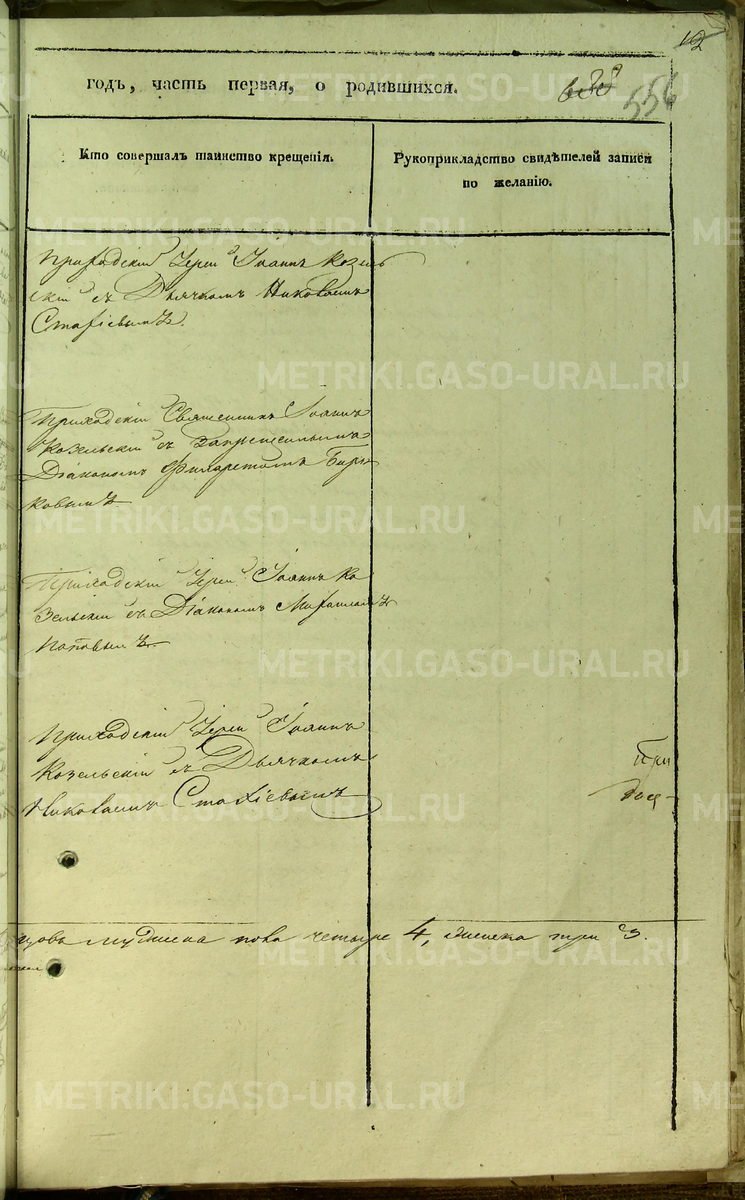 12
годъ, часть первая, о родившихся.
556
Кто совершалъ таинство крещенія.
Рукоприкладство свидѣтелей записи
по желанію.
Приходскій Іерей Іоаннъ Козель
скій съ Дьячкомъ Николаемъ
Стафіевымъ.
Приходскій Священникъ Іоаннъ
Козельскій съ Запрещеннымъ
Діакономъ Филаретомъ Бирю
ковымъ
Приходскій Іерей Іоаннъ Ко
зельскій съ Діакономъ Михаиломъ
Поповымъ.
Приходскій Іерей Іоаннъ
Козельскій съ Дьячкомъ
Николаемъ Стафіевымъ
При
мужеска пола четыре 4, женска три 3.
METRIKI.GASO-URAL.RU